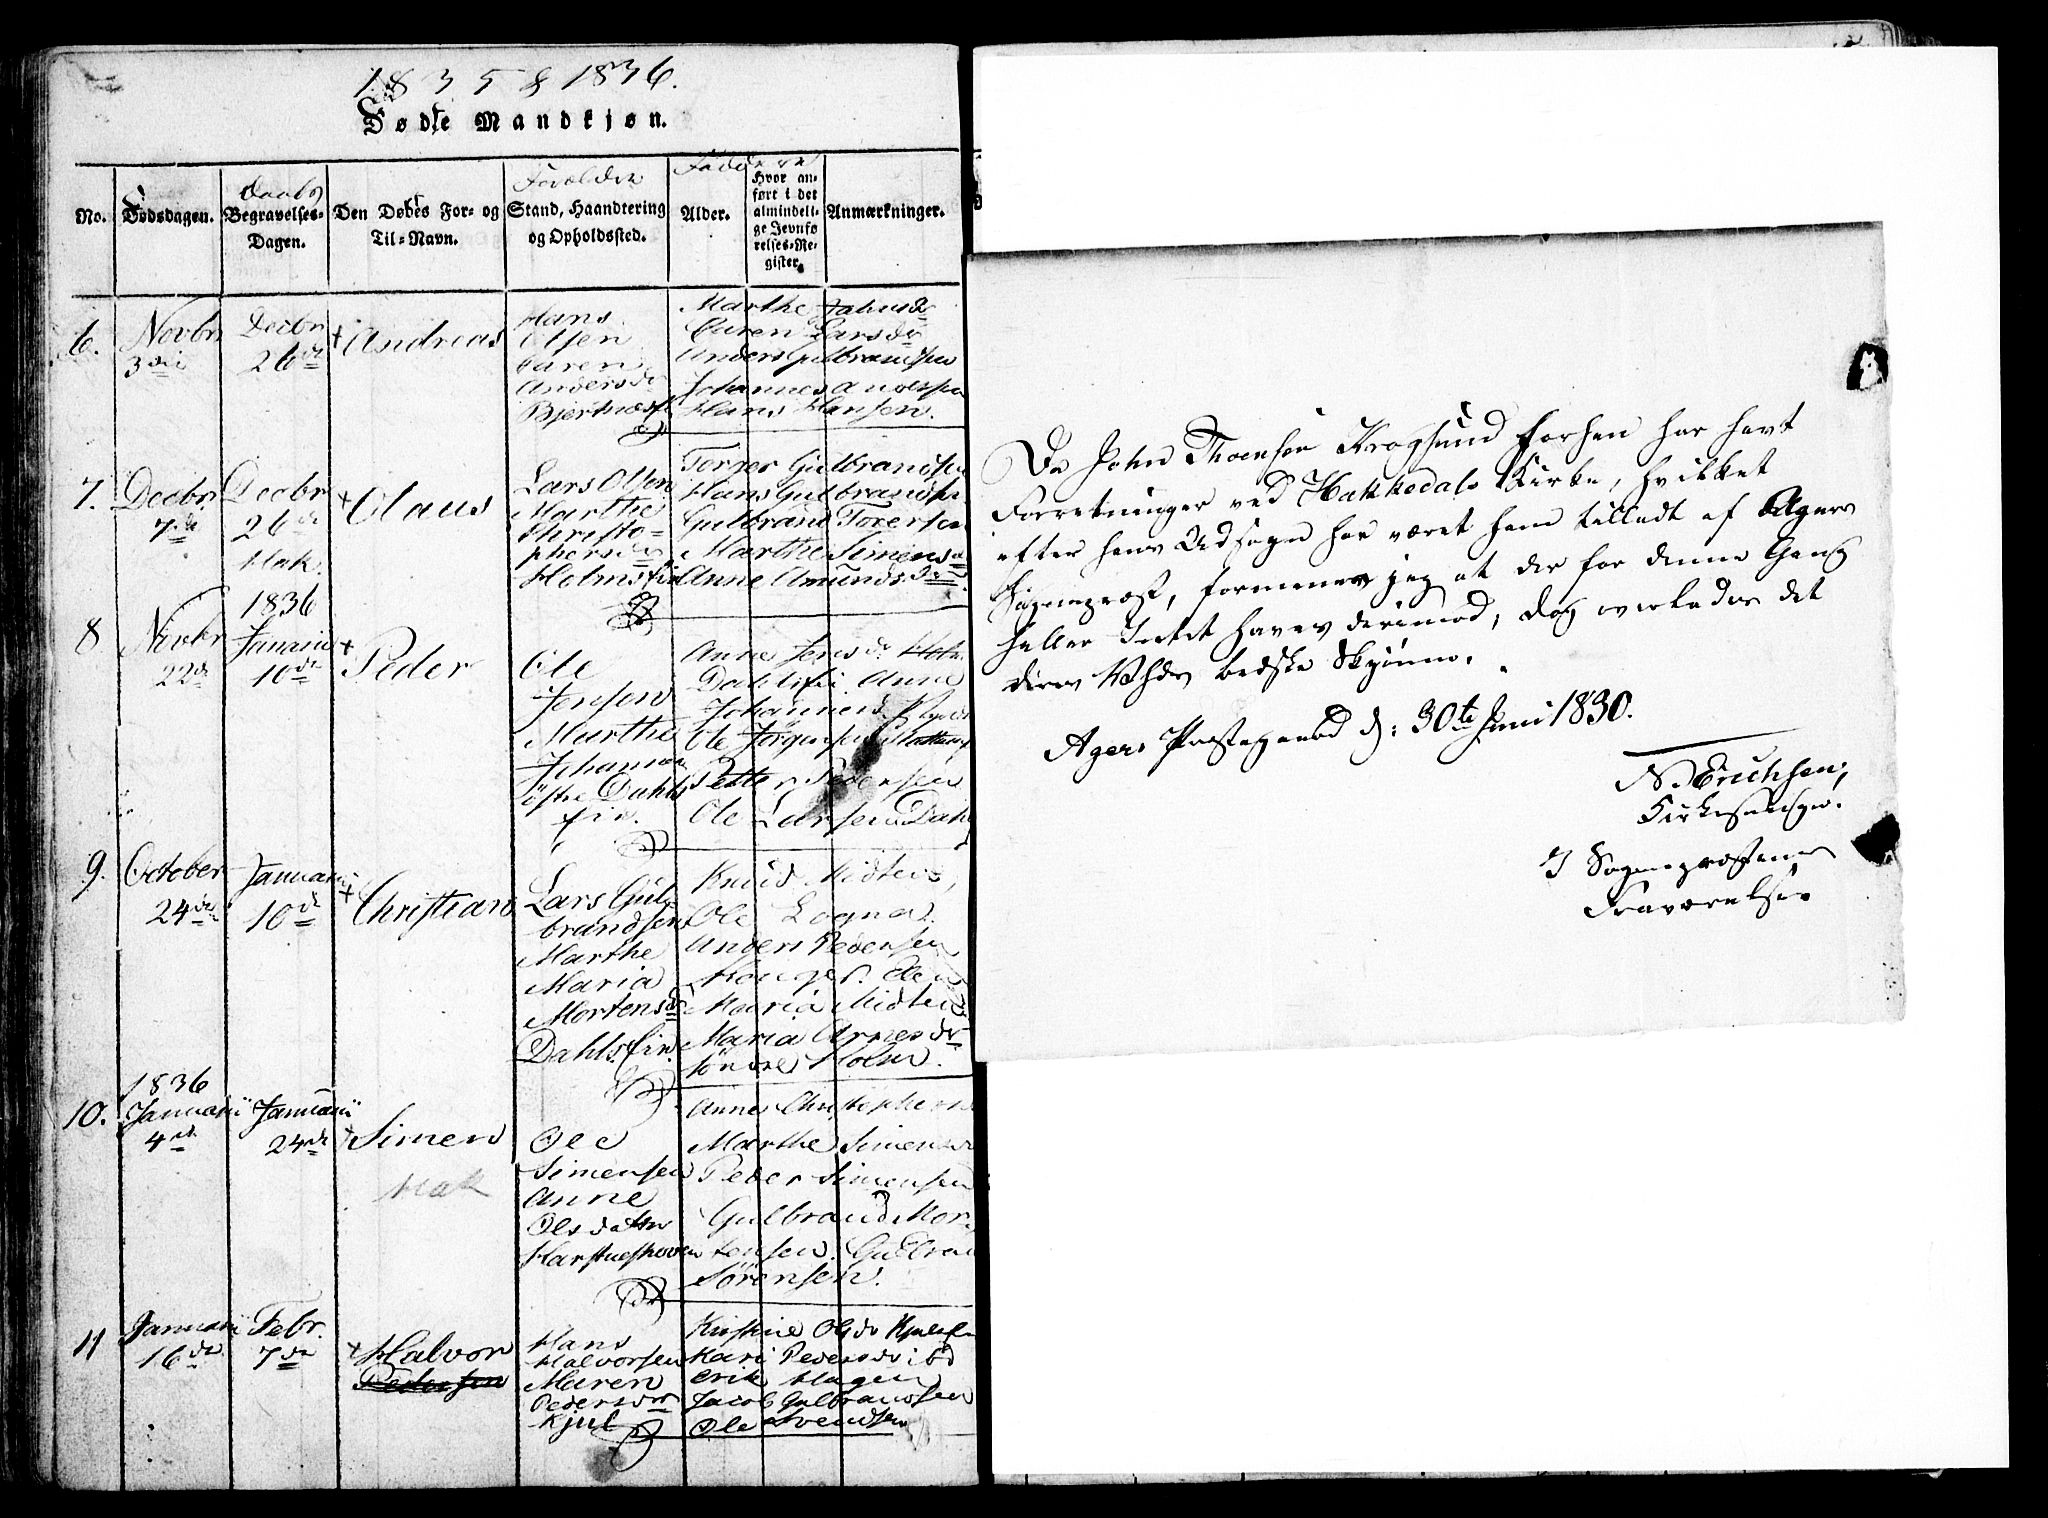 1835 & 1836.
Fødte Mandkjøn.
No.
Dødsdagen.
Daabs
Begravelses-
Dagen.
Den Døbes For- og
Til-Navn.
Forældre
Stand, Haandtering
og Opholdssted.
Fadde
Alder.
Hvor an-
ført i det
almindeli-
ge Jevnfø
relses-Re-
gister.
Anmærkninger.
6.
Novbr
3die
Decbr
26de
+ Andreas
Hans
Olsen
Karen
Andersdr
Bjertnæs
Marthe
Caren Larsdr
Anders Gulbrandsen
Johannes Andersen
Hans Hansen.
7.
Decbr
7de
Decbr
26de
Hak.
+ Olaus
Lars Olsen
Marthe
Christo-
phersdr
Holms
Torger Gulbrandsen
Hans Gulbrandsen
Gulbrand Torersen
Marthe Simensd
Anne Amundsd
8
Novbr
22de
1836
Januarii
10de
+
Peder
Ole
Jensen
Marthe
Johannes
Østre Dahls
ein.
Anne Jensdr Holm
Dahls ei. Anne
Johannesd.
Ole Jørgensen
Petter Pedersen
Ole Larsen Dahl
9.
October
24de
Januarii
10de
+
Christian
Lars Gul-
brandsen
Marthe
Maria
Mortensdr
Dahls ein.
Knud
Ole Logna.
Anders Pedersen
Ole
Maria
Maria Arnesdr
søndre Holm.
10.
1836
Januarii
4de
Januarii
24de
+ Simen
Hak
Ole
Simensen
Anne
Olsdatter
Harstueskoven
Anne Christophers
Marthe Simensd
Peder Simensen
Gulbrand Mor-
tensen. Gulbran
Sørensen.
11
Januarii
16de
Febr.
7de
+ Halvor
Pedersen
Hans
Halvorsen
Maren
Pedersdr
Kjul
Kristine Olsdr
Kari Pedersdr ibd
Erik Hagen
Jacob Gulbrandsen
Ole Svendsen
Da John Thoensen Krogsund forhen har havt
Forretninger ved Hakkedals Kirke, hvilket
efter hans Udsagn har været ham tilladt af Agers
Sognepræst, formener jeg at der for denne Gang
heller Intet haves derimod, dog overlades det
deres bedste Skjønne.
Agers Præstegaard d: 30te Juni 1830.
N. Erichsen,
Kirkesanger.
I Sognepræstens
Fraværelse